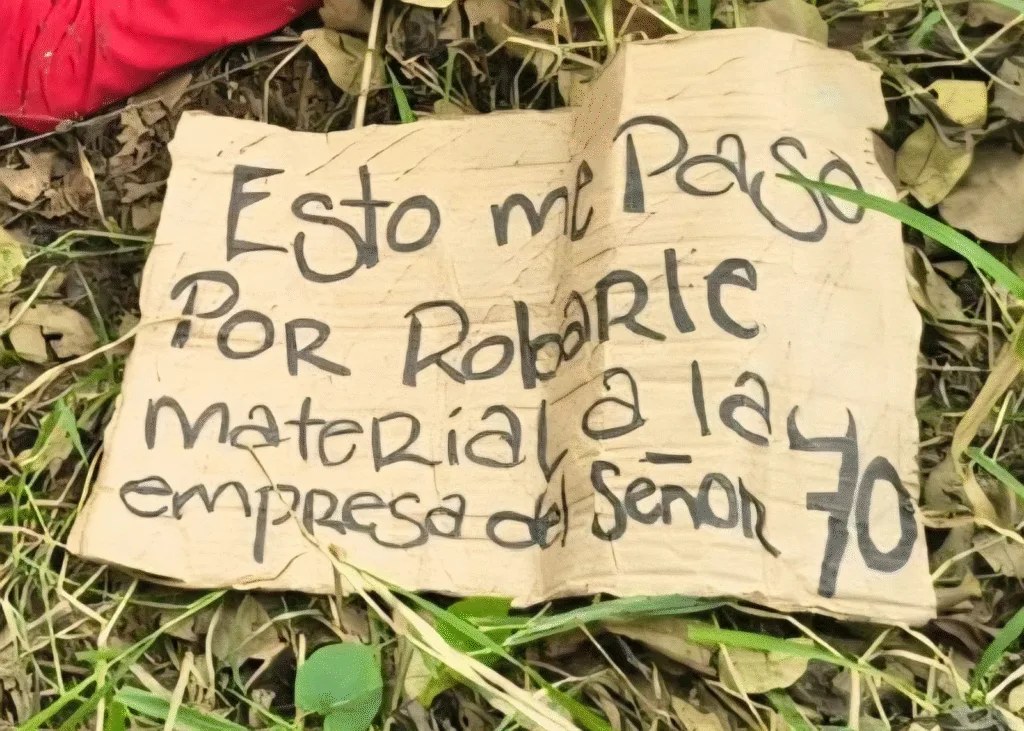 Esto me Paso
Por Robarle
material a la
empresa del Señor 70